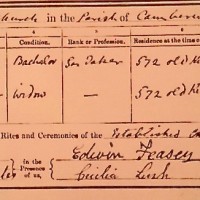 Church in the Parish of Camberw
Condition. Rank or Profession. Residence at the time of
Bachelor 572 old K
Widow — 572 old K
Rites and Ceremonies of the Established C
in the Presence of us, Edwin Feasey
Cecilia Lush